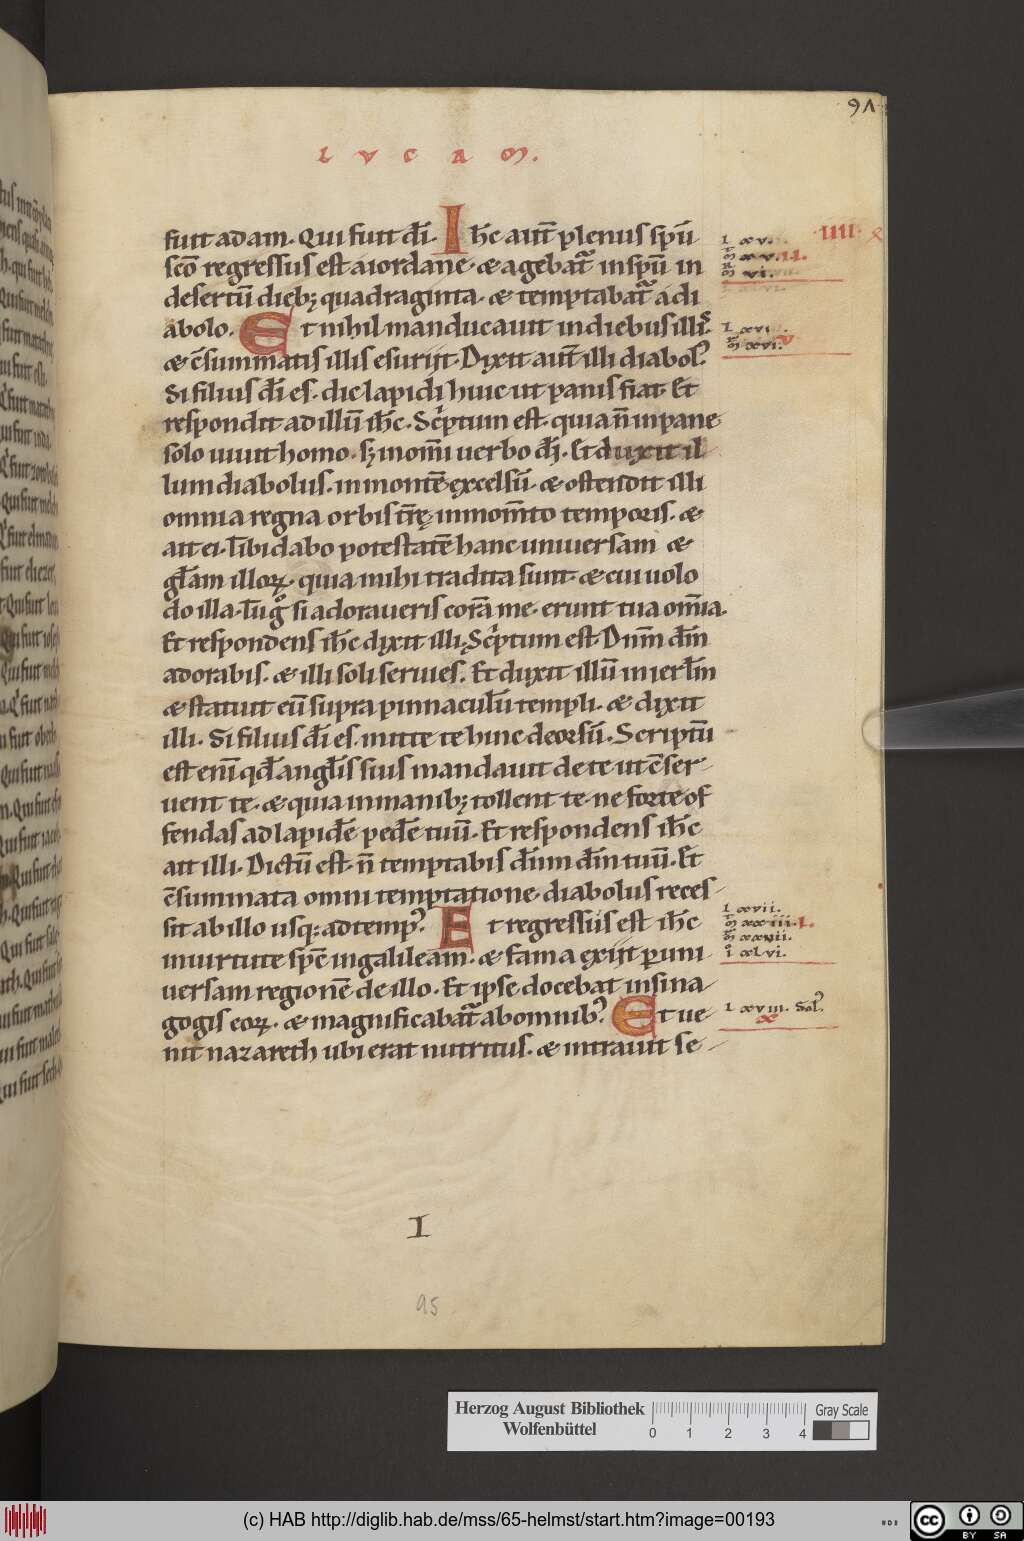 91
LVCAM.
fuit adam. Qui fuit dī. Ihc aut̄ plenus spū
scō regressus est aiordane. & agebat᷑ inspū in
desertū dieb; quadraginta. & temptabat᷑ a di
abolo. Et nihil manducauit indiebus illis.
& c̄summatis illis esurijt. Dixit aut̄ illi diabol᷒.
Si filius dī es. dic lapidi huic ut panis fiat. Et
respondit ad illū ihc. Scriptum est. quia n̄ inpane
solo uiuit homo. s; inom̄i uerbo dī. Et duxit il
lum diabolus. inmontē excelsū. & ostendit illi
omnia regna orbis tr̄ę. inmom̄to temporis. &
ait ei. Tibi dabo potestatē hanc uniuersam &
gl̄am illoꝝ. quia mihi tradita sunt. & cui uolo
do illa. Tu gͦ si adoraueris corā me. erunt tua om̄ia.
Et respondens ihc dixit illi. Scriptum est. Dn̄m dm̄
adorabis. & illi soli seruies. Et duxit illū in ierl̄m
& statuit eū supra pinnaculū templi. & dixit
illi. Si filius dī es. mitte te hinc deorsū. Scriptū
est eni qd̄ angl̄is suis mandauit de te ut c̄ser
uent te. & quia inmanib; tollent te. ne forte of
fendas ad lapidē pedē tuū. Et respondens ihc
ait illi. Dictū est. n̄ temptabis dn̄m dm̄ tuū. Et
c̄summata omni temptatione. diabolus reces
sit ab illo usq; ad temp᷒. Et regressus est ihc
inuirtute spc ingalileam. & fama exijt p uni
uersam regionē de illo. Et ipse docebat insina
gogis eoꝝ. & magnificabat᷑ abomnib᷒. Et ue
nit nazareth ubi erat nutritus. & intrauit se
IIII
L xv.
m̄ vi.
L xvi
m̄ xvi.
L xvii.
m̄ xxiii. I.
m̄ xxvii.
i xlvi.
L xviii. Sol᷒.
x
I
95
Herzog August Bibliothek
Wolfenbüttel
0 1 2 3 4
Gray Scale
(c) HAB http://diglib.hab.de/mss/65-helmst/start.htm?image=00193
HAB
cc BY SA